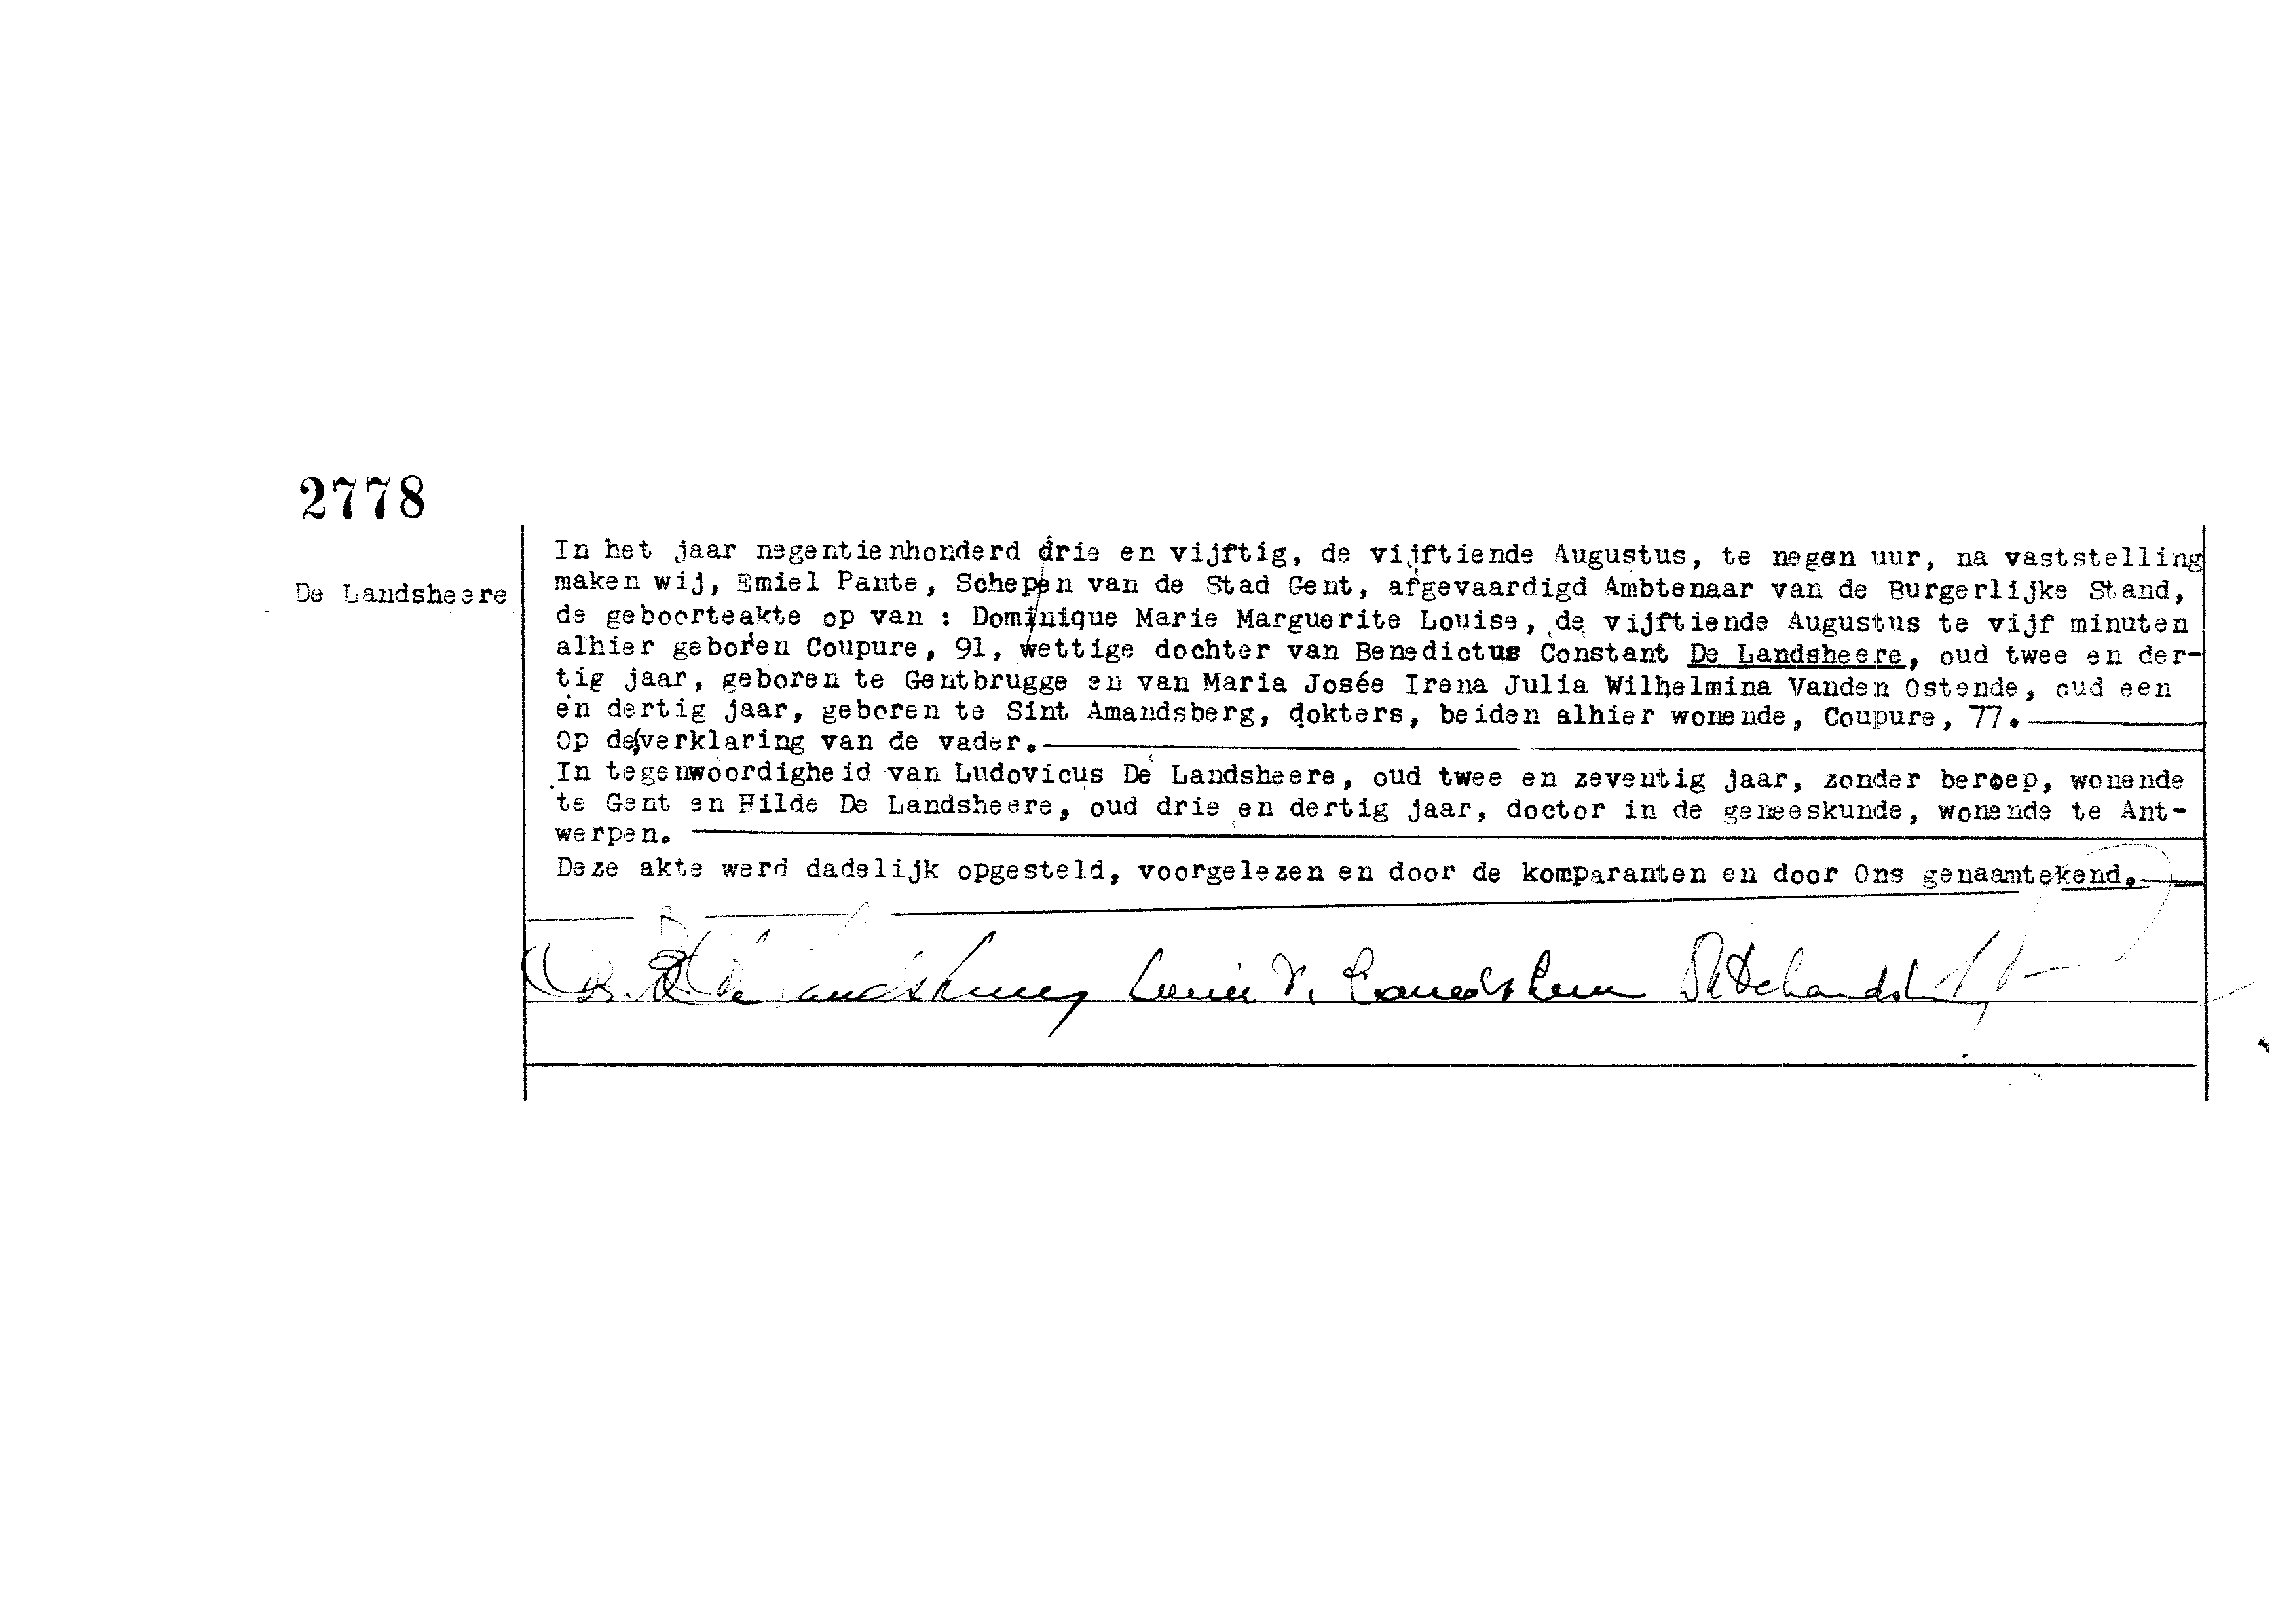 2778
De Landsheere
In het jaar negentienhonderd drie en vijftig, de vijftiende Augustus, te negen uur, na vaststelling
maken wij, Emiel Pante, Schepen van de Stad Gent, afgevaardigd Ambtenaar van de Burgerlijke Stand,
de geboorteakte op van : Dominique Marie Marguerite Louise, de vijftiende Augustus te vijf minuten
alhier geboren Coupure, 91, wettige dochter van Benedictus Constant De Landsheere, oud twee en der-
tig jaar, geboren te Gentbrugge en van Maria Josée Irena Julia Wilhelmina Vanden Ostende, oud een
en dertig jaar, geboren te Sint Amandsberg, dokters, beiden alhier wonende, Coupure, 77.
Op de verklaring van de vader.
In tegenwoordigheid van Ludovicus De Landsheere, oud twee en zeventig jaar, zonder beroep, wonende
te Gent en Hilde De Landsheere, oud drie en dertig jaar, doctor in de geneeskunde, wonende te Ant-
werpen.
Deze akte werd dadelijk opgesteld, voorgelezen en door de komparanten en door Ons genaamtekend.